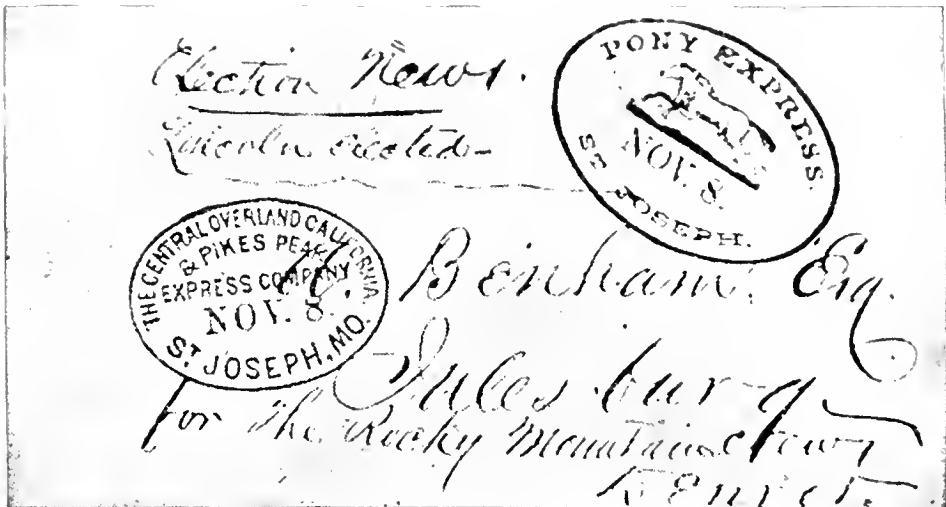 Election News.
Lincoln Elected-
PONY EXPRESS.
NOV. 8.
ST JOSEPH.
THE CENTRAL OVERLAND CALIFORNIA
& PIKES PEAK
EXPRESS COMPANY
NOV. 8.
ST JOSEPH, MO.
A. Benham, Esq.
Julesburg
for the Rocky Mountain News
Denver.